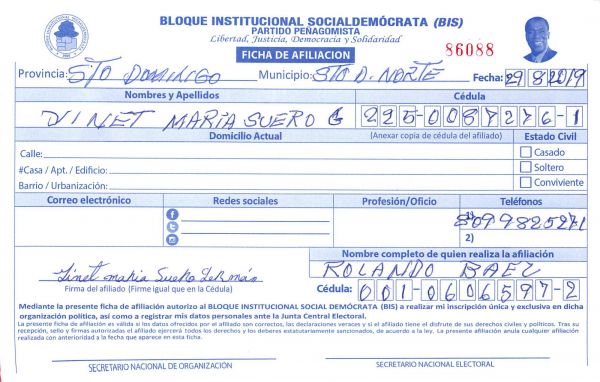 BLOQUE INSTITUCIONAL SOCIALDEMÓCRATA (BIS)
PARTIDO PEÑAGOMISTA
Libertad, Justicia, Democracia y Solidaridad
FICHA DE AFILIACION
86088
Provincia: STO DOMINGO Municipio: STO D. NORTE Fecha: 29 8 2019
Nombres y Apellidos Cédula
VINET MARIA SUERO G 225-0087276-1
Domicilio Actual (Anexar copia de cédula del afiliado) Estado Civil
Calle: Casado
#Casa / Apt. / Edificio: Soltero
Barrio / Urbanización: Conviviente
Correo electrónico Redes sociales Profesión/Oficio Teléfonos
1) 8099825271
2)
Nombre completo de quien realiza la afiliación
ROLANDO BAEZ
Firma del afiliado (Firme igual que en la Cédula)
Cédula: 001-0606597-2
Mediante la presente ficha de afiliación autorizo al BLOQUE INSTITUCIONAL SOCIAL DEMÓCRATA (BIS) a realizar mi inscripción única y exclusiva en dicha
organización política, así como a registrar mis datos personales ante la Junta Central Electoral.
La presente ficha de afiliación es válida si los datos ofrecidos por el afiliado son correctos, las declaraciones veraces y si el afiliado tiene el disfrute de sus derechos civiles y políticos. Tras su
recepción, sello y firmas autorizadas el afiliado ejercerá todos los derechos y los deberes estatutariamente sancionados, de acuerdo a la ley. La presente afiliación anula cualquier afiliación
realizada con anterioridad a la fecha que aparece en esta ficha.
SECRETARIO NACIONAL DE ORGANIZACIÓN SECRETARIO NACIONAL ELECTORAL